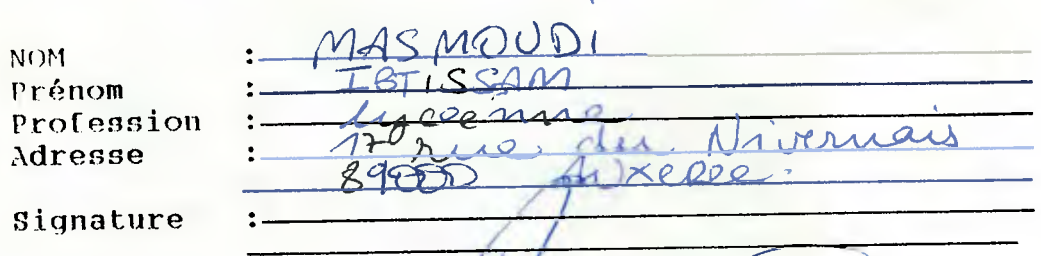 NOM : MASMOUDI
Prénom : IBTISSAM
Profession : lycéenne
Adresse : 17 rue du Nivernais
89000 Auxerre.
Signature :